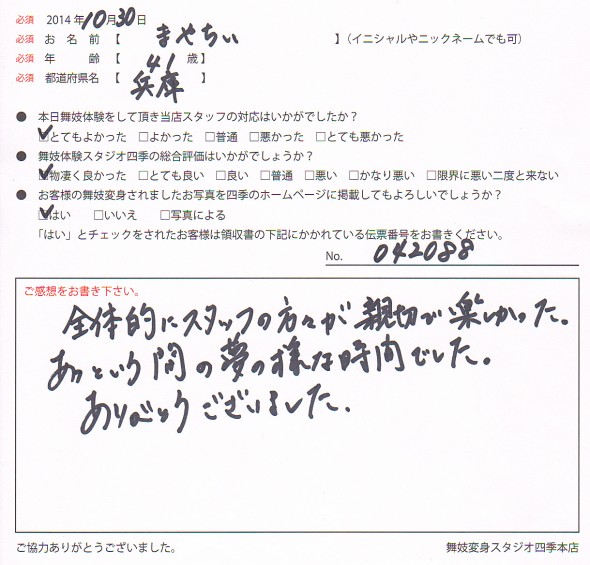 必須 2014年10月30日
必須 お名前【 まやちぃ 】(イニシャルやニックネームでも可)
必須 年齢【 41 歳】
必須 都道府県名【 兵庫 】
● 本日舞妓体験をして頂き当店スタッフの対応はいかがでしたか?
☑とてもよかった □よかった □普通 □悪かった □とても悪かった
● 舞妓体験スタジオ四季の総合評価はいかがでしょうか?
☑物凄く良かった □とても良い □良い □普通 □悪い □かなり悪い □限界に悪い二度と来ない
● お客様の舞妓変身されましたお写真を四季のホームページに掲載してもよろしいでしょうか?
☑はい □いいえ □写真による
「はい」とチェックをされたお客様は領収書の下記にかかれている伝票番号をお書きください。
No. 042088
ご感想をお書き下さい。
全体的にスタッフの方々が親切で楽しかった。
あっという間の夢の様な時間でした。
ありがとうございました.
ご協力ありがとうございました。
舞妓変身スタジオ四季本店